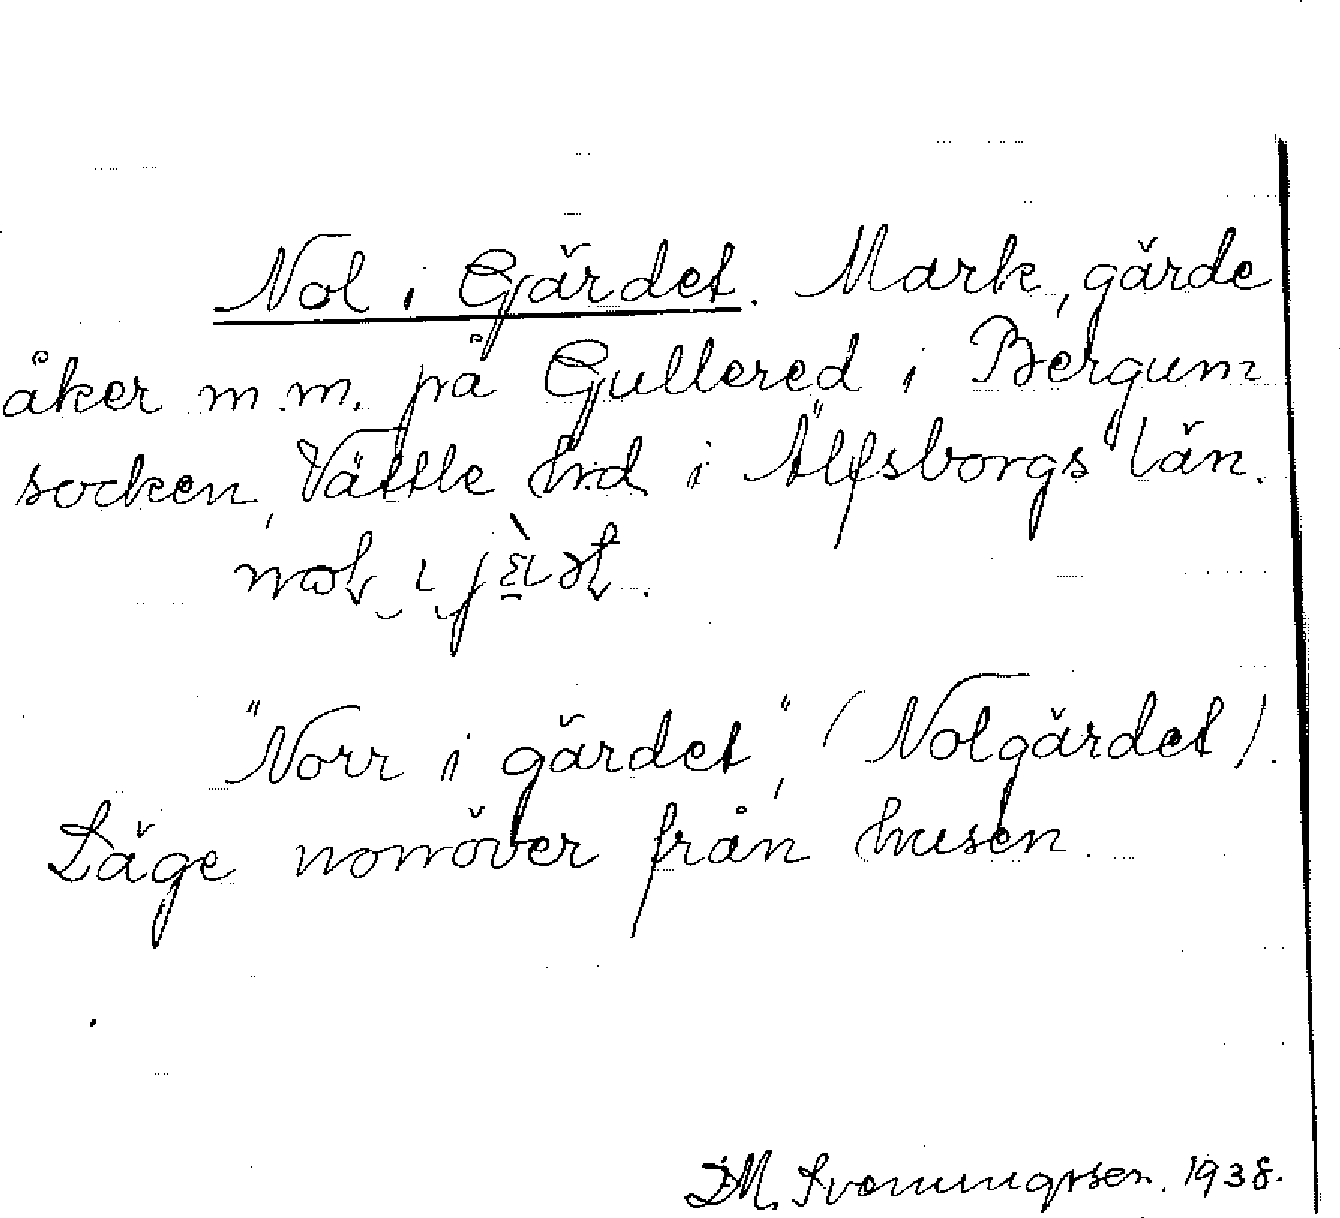 Nol i Gärdet. Mark, gärde
åker m.m. på Gullered i Bergum
socken, Vättle hrd i Älfsborgs län.
"Norr i gärdet", (Nolgärdet).
Läge norröver från husen.
D.M. Svenningssen. 1938.